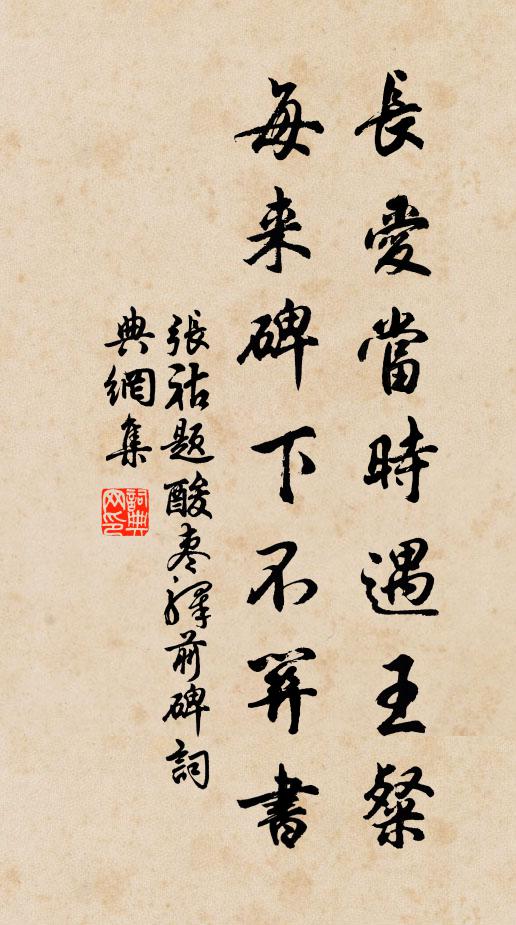 長愛當時遇王粲
每来碑下不筭書
張祜题酸枣驛前碑詞
典網集
詞典
网印